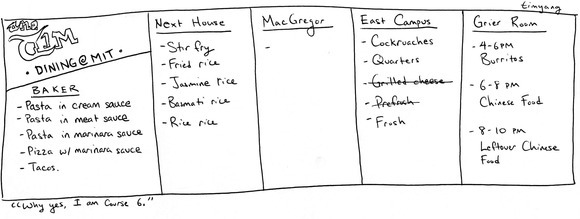 timyang
CIM
• DINING@MIT •
BAKER
- Pasta in cream sauce
- Pasta in meat sauce
- Pasta in marinara sauce
- Pizza w/ marinara sauce
- Tacos.
NEXT HOUSE
- Stir fry
- Fried rice
- Jasmine rice
- Basmati rice
- Rice rice
MACGREGOR
-
EAST CAMPUS
- Cockroaches
- Quarters
- Grilled cheese
- Prefrosh
- Frosh
GRIER ROOM
- 4-6PM
Burritos
- 6-8 PM
Chinese Food
- 8-10 PM
Leftover Chinese
Food
"Why yes, I am Course 6."